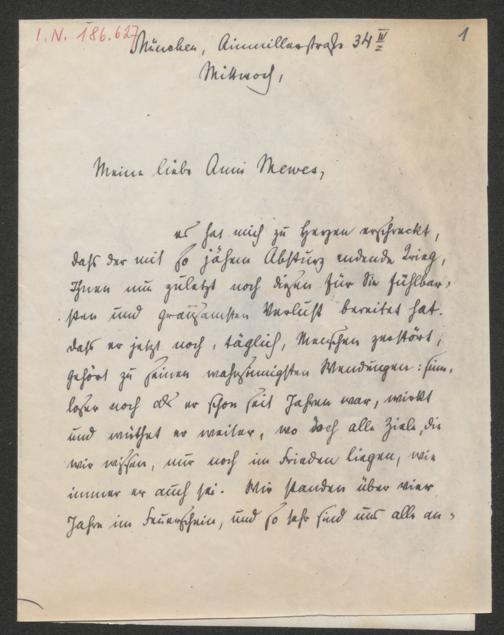 I. N. 186.627
1
München, Ainmillerstraße 34 IV
Mittwoch,
Meine liebe Anni Mewes,
es hat mich zu Herzen erschreckt,
daß der mit so jähem Absturz endende Krieg,
Ihnen nun zuletzt noch diesen für Sie fühlbar-
sten und grausamsten Verlust bereitet hat.
Daß er jetzt noch, täglich, Menschen zerstört,
gehört zu seinen wahnsinnigsten Wendungen: sinn-
loser noch als er schon seit Jahren war, wirkt
und wüthet er weiter, wo doch alle Ziele, die
wir wissen, nur noch im Frieden liegen, wie
immer er auch sei. Wir standen über vier
Jahre im Feuerschein, und so sehr sind uns alle an-